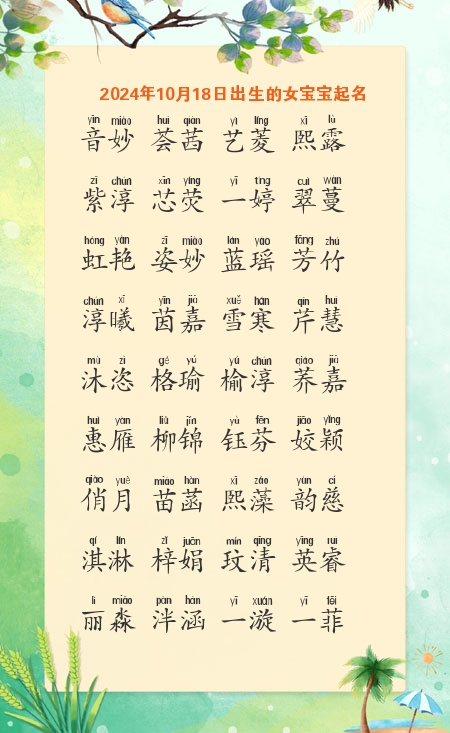 2024年10月18日出生的女宝宝起名
yīn miào huì qiàn yì líng xī lù
音妙 荟茜 艺菱 熙露
zǐ chún xīn yíng yī tíng cuì wàn
紫淳 芯荧 一婷 翠蔓
hóng yàn zī miào lán yáo fāng zhú
虹艳 姿妙 蓝瑶 芳竹
chún xī yīn jiā xuě hán qín huì
淳曦 茵嘉 雪寒 芹慧
mù zì gé yú yú chún qiáo jiā
沐恣 格瑜 榆淳 荞嘉
huì yàn liǔ jǐn yù fēn jiāo yǐng
惠雁 柳锦 钰芬 姣颖
qiào yuè miáo hàn xī zǎo yùn cí
俏月 苗菡 熙藻 韵慈
qí lín zǐ juān mín qīng yīng ruì
淇淋 梓娟 玟清 英睿
lì miǎo pàn hán yī xuán yī fēi
丽淼 泮涵 一漩 一菲